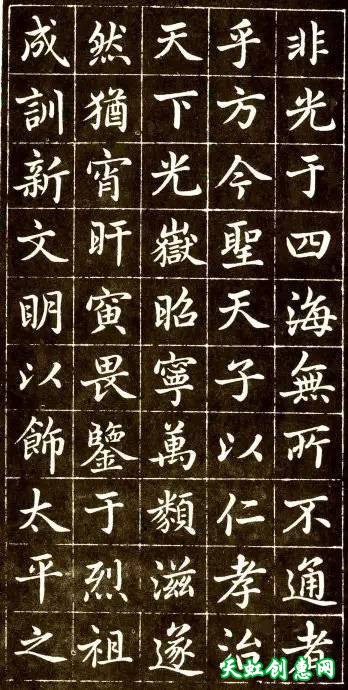 非光于四海無所不通者
乎方今聖天子以仁孝治
天下光嶽昭寧萬類滋遂
然猶宵旰寅畏鑒于烈祖
成訓新文明以飾太平之
天虹创意网